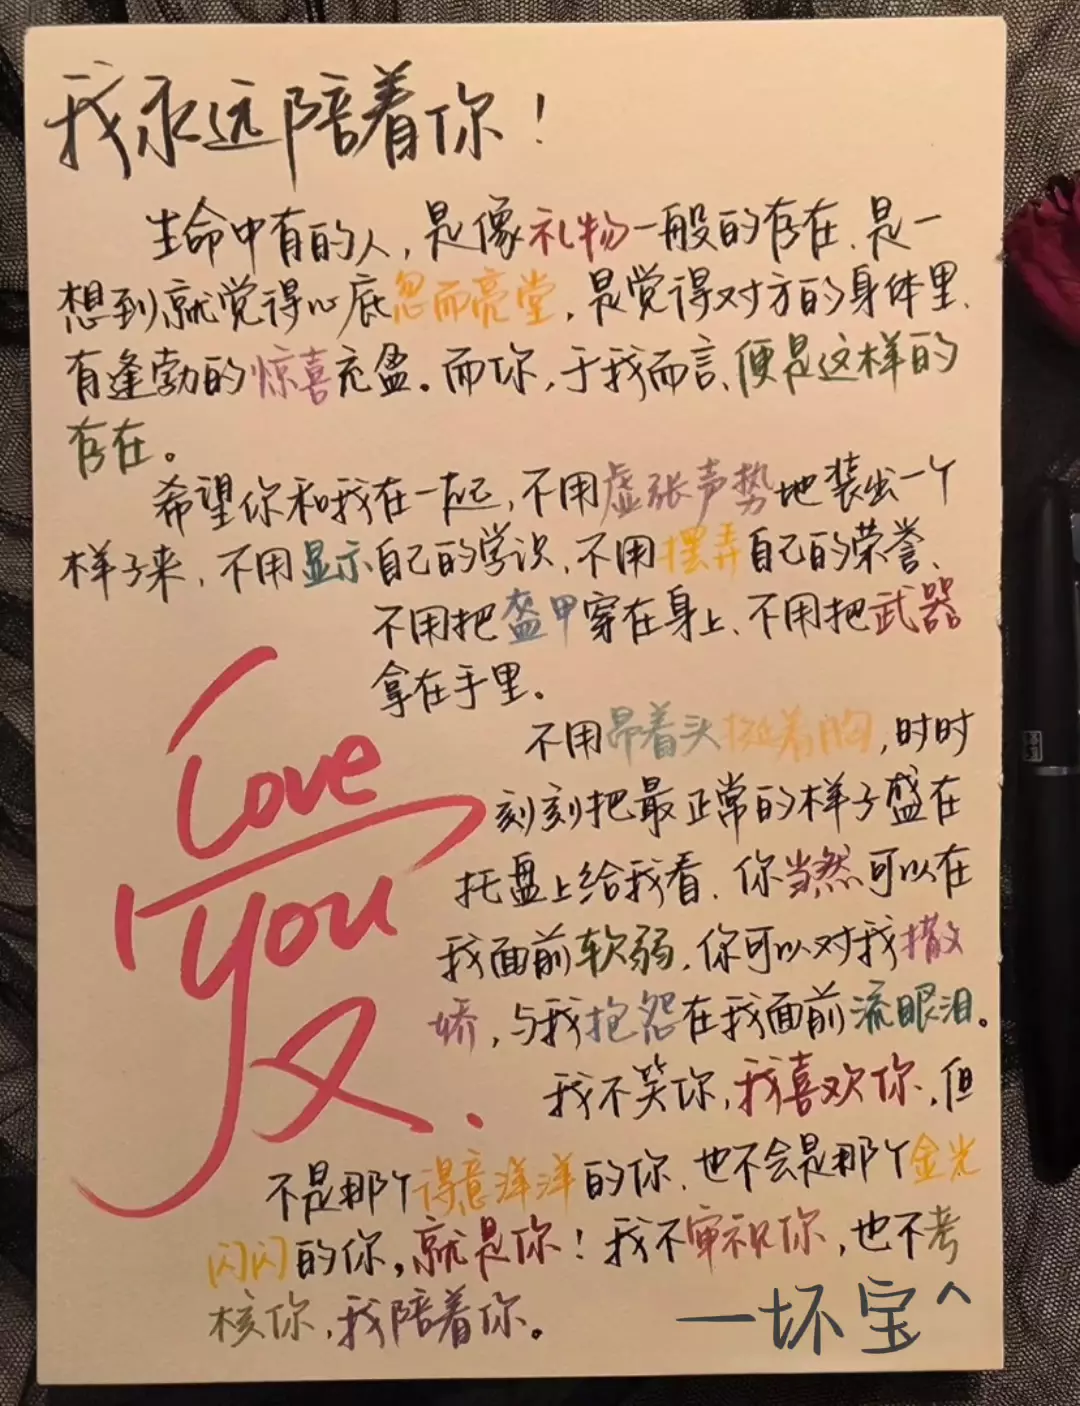 我永远陪着你！
生命中有的人，是像礼物一般的存在、是一
想到就觉得心底忽而亮堂，是觉得对方的身体里、
有蓬勃的惊喜充盈。而你，于我而言、便是这样的
存在。
希望你和我在一起，不用虚张声势地装出一个
样子来，不用显示自己的学识、不用摆弄自己的荣誉、
不用把盔甲穿在身上、不用把武器
拿在手里。
不用昂着头挺着胸，时时
刻刻把最正常的样子盛在
托盘上给我看．你当然可以在
我面前软弱．你可以对我撒
娇，与我抱怨在我面前流眼泪。
我不笑你，我喜欢你、但
不是那个得意洋洋的你．也不会是那个金光
闪闪的你，就是你！我不审视你，也不考
核你，我陪着你。
Love
You
一坏宝^